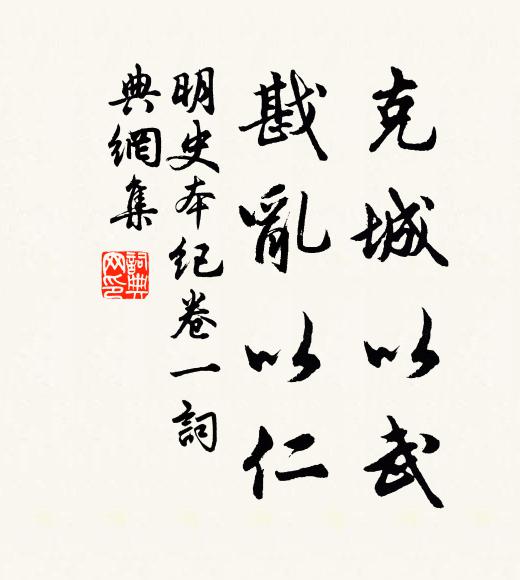 克城以武
戡亂以仁
明史本紀卷一詞
典網集
詞典
网印